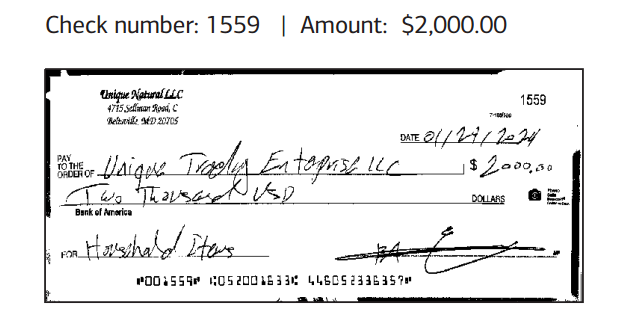 Check number: 1559 | Amount: $2,000.00
Unique Natural LLC
4715 Sellman Road, C
Beltsville MD 20705
1559
DATE 01/29/2024
PAY TO THE ORDER OF Unique Trading Enterprise LLC $ 2000.00
Two Thousand USD DOLLARS
Bank of America
FOR Household Items
⑈001559⑈ ⑆052001633⑆ 446052336357⑈